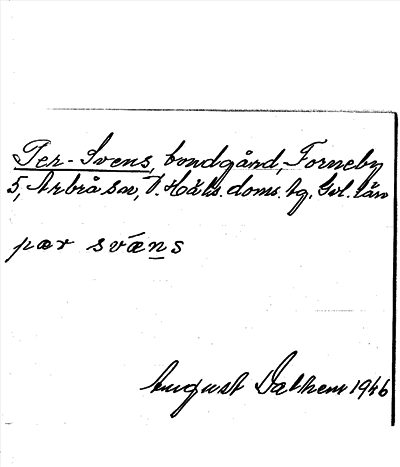 Per-Svens, bondgård, Forneby
5, Arbrå sn, V. Häls. doms. hg, Gvl. län
pær svæns
August Dalhem 1946